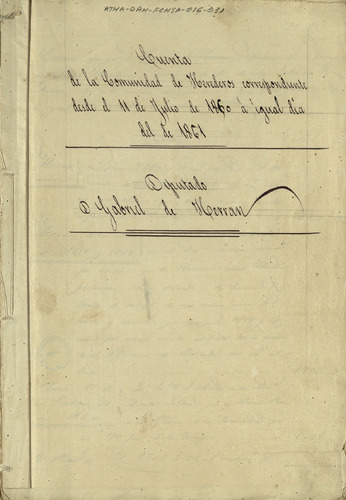 ATHA-DAH-FCHSA-016-021
Cuenta
de la Comunidad de Herederos correspondiente
desde el 11 de Julio de 1860 á igual dia
del de 1861
Diputado
D Gabriel de Herran